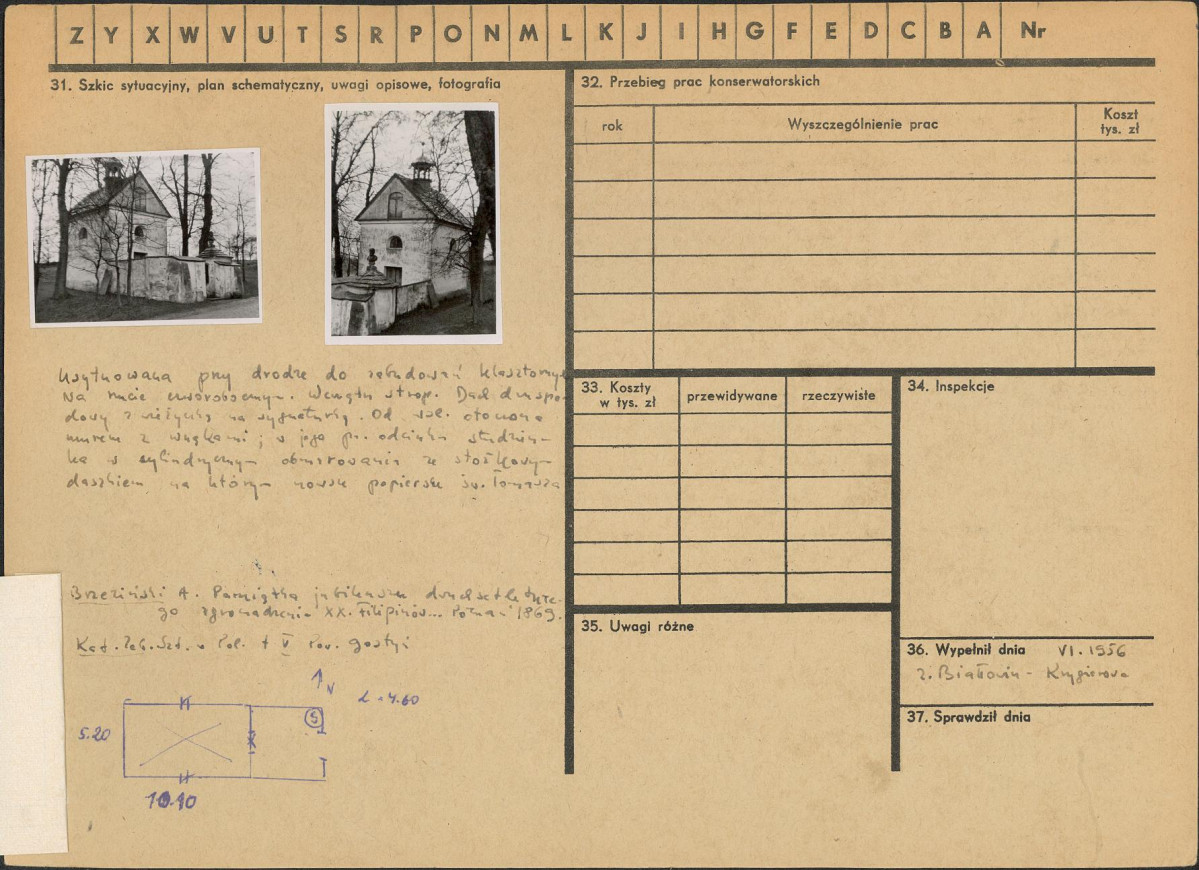 Z Y X W V U T S R P O N M L K J I H G F E D C B A Nr
31. Szkic sytuacyjny, plan schematyczny, uwagi opisowe, fotografia
Usytuowana przy drodze do zabudowań klasztornych
Na rzucie czworobocznym. Wewnątrz strop. Dach dwuspa-
dowy z wieżyczką na sygnaturkę. Od otoczona
murem z wnękami; w jego pn. odcinku studzien-
ka w cylindrycznym obmurowaniu ze stożkowym
daszkiem na którym nowsze popiersie św. Tomasza
Brzeziński A. Pamiątka jubileuszu dwuchsetletnie-
go zgromadzenia XX. Filipinów... Poznań 1869.
Kat. Zab. Szt. w Pol. t V pow. gostyń
N
S
5.20
10.10
32. Przebieg prac konserwatorskich
rok
Wyszczególnienie prac
Koszt
tys. zł
33. Koszty
w tys. zł
przewidywane
rzeczywiste
34. Inspekcje
35. Uwagi różne
36. Wypełnił dnia VI. 1956
Z. Białłowicz-Krygierowa
37. Sprawdził dnia